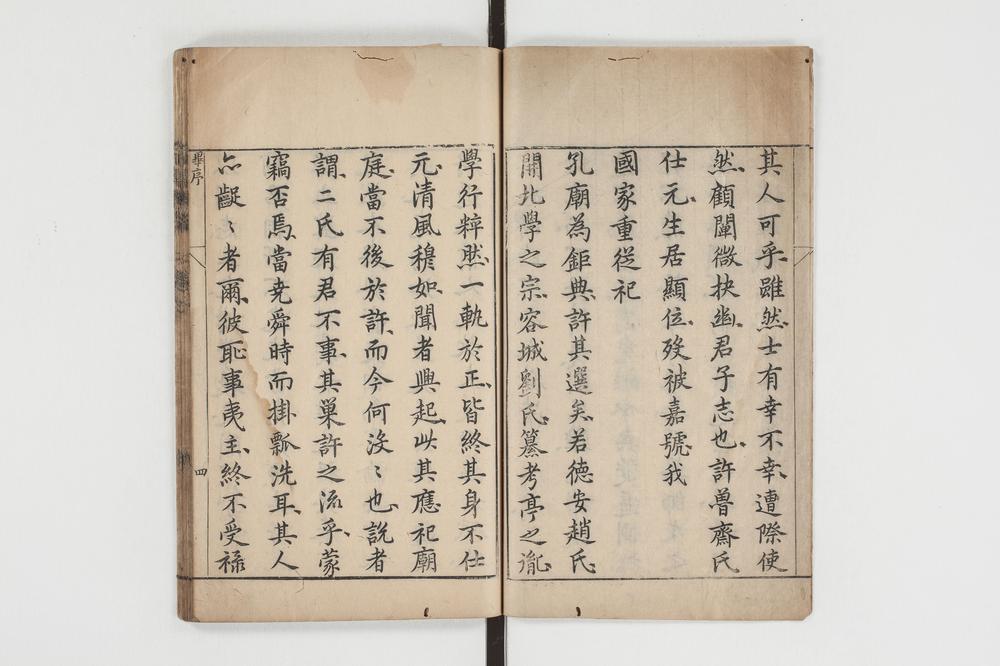 其人可乎雖然士有幸不幸遭際使
然顧闡微抉幽君子志也許魯齋氏
仕元生居顯位歿被嘉號我
國家重從祀
孔廟為鉅典許其選矣若德安趙氏
開北學之宗容城劉氏纂考亭之胤
學行粹然一軌於正皆終其身不仕
元清風穆如聞者興起此其應祀廟
庭當不後於許而今何沒〻也說者
謂二氏有君不事其巢許之流乎蒙
竊否焉當堯舜時而掛瓢洗耳其人
亦齪〻者爾彼恥事夷主終不受祿
序
四